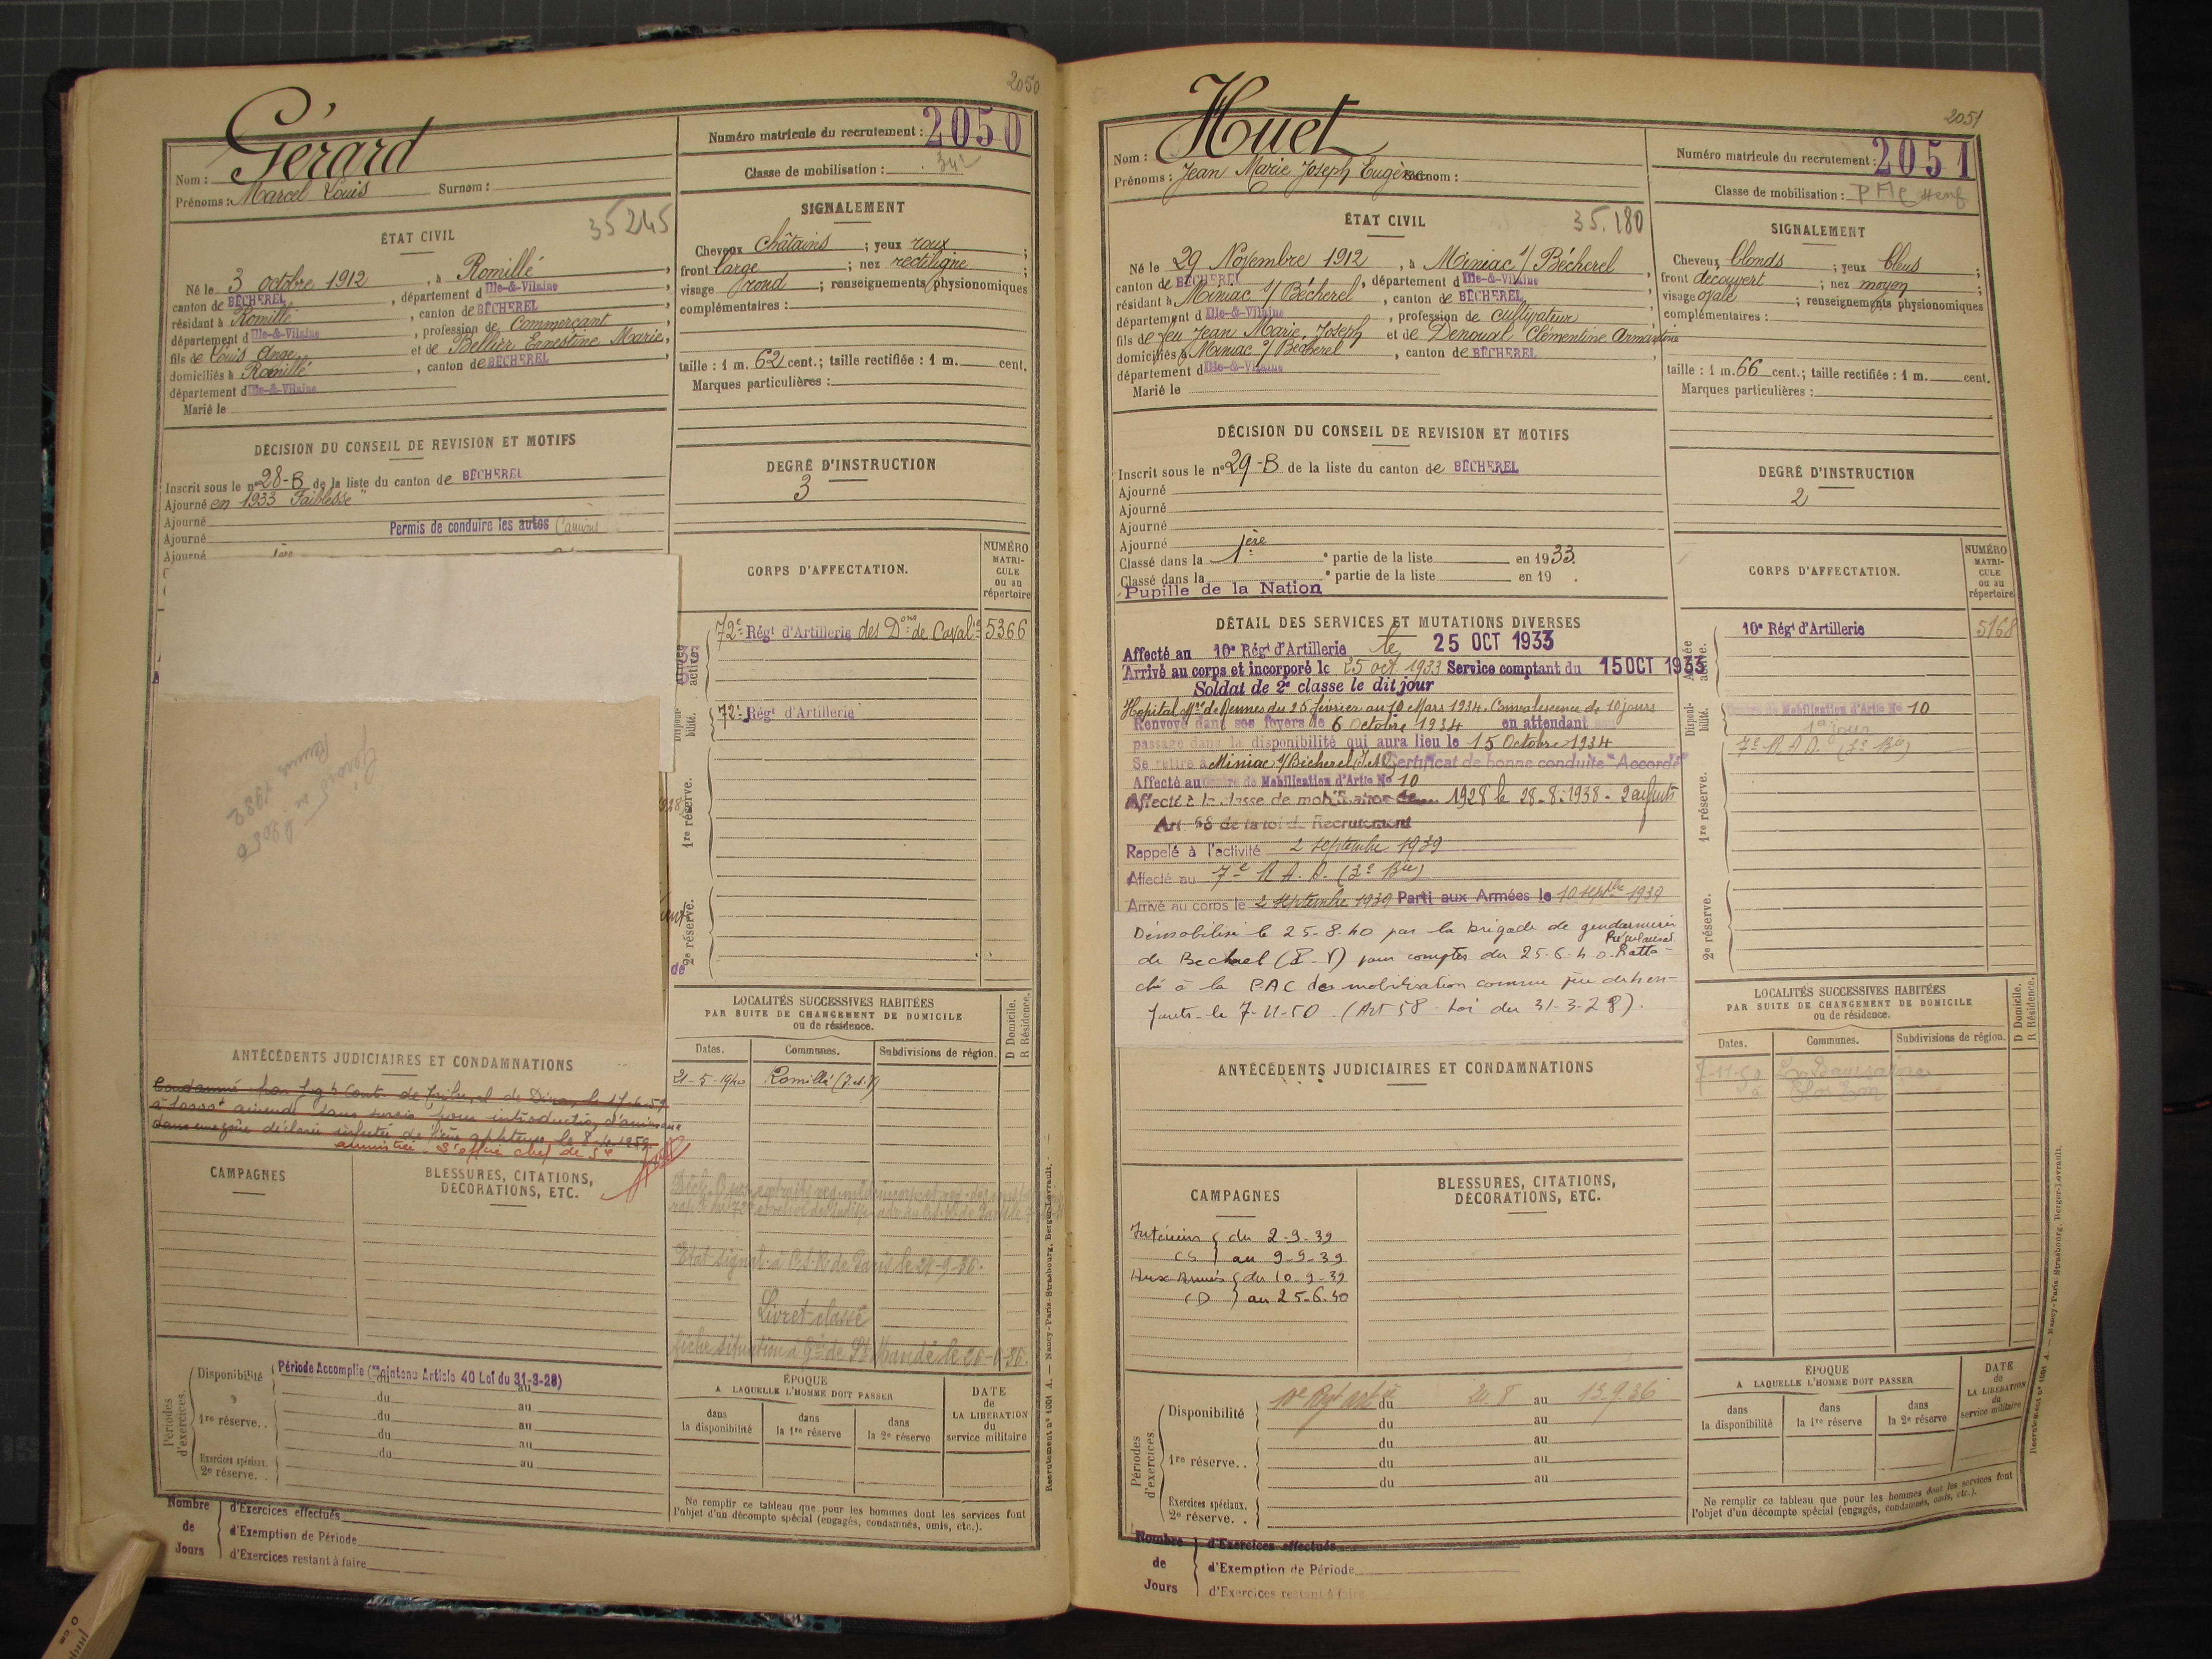 2050
Gérard
Nom :
Prénoms : Marcel Louis Surnom :
Numéro matricule du recrutement : 2050
Classe de mobilisation :
ÉTAT CIVIL
35245
Né le 3 octobre 1912, à Romillé,
canton de BÉCHEREL, département d Ille-&-Vilaine
résidant à Romillé, canton de BÉCHEREL
département d Ille-&-Vilaine, profession de Commerçant,
fils de Louis Ange et de Bellier Ernestine Marie,
domiciliés à Romillé, canton de BÉCHEREL
département d Ille-&-Vilaine
Marié le
SIGNALEMENT
Cheveux châtains ; yeux roux ;
front large ; nez rectiligne ;
visage rond ; renseignements physionomiques
complémentaires :
taille : 1 m. 62 cent.; taille rectifiée : 1 m. cent.
Marques particulières :
DÉCISION DU CONSEIL DE REVISION ET MOTIFS
Inscrit sous le n° 28-B de la liste du canton de BÉCHEREL
Ajourné en 1933 "Faiblesse"
Ajourné
Permis de conduire les autos Camions
Ajourné
Ajourné
DEGRÉ D'INSTRUCTION
3
CORPS D'AFFECTATION.
NUMÉRO MATRI-CULE ou au répertoire
72e Régt d'Artillerie des Dons de Cavalie 5366
active.
Disponi-bilité.
72e Régt d'Artillerie
1re réserve.
2e réserve.
Gérard
1932
LOCALITÉS SUCCESSIVES HABITÉES
PAR SUITE DE CHANGEMENT DE DOMICILE
ou de résidence.
D Domicile.
R Résidence.
Dates. Communes. Subdivisions de région.
21-5-1940 Romillé (I.et.V)
Etat signal. à C.S.R de Paris le 21-9-36.
Livret classé
fiche situation à Gie de St Mandé le
ANTÉCÉDENTS JUDICIAIRES ET CONDAMNATIONS
Condamné par Jugt Cont. de tribunal de Dinan le
amende sans sursis pour introduction d'animaux
dans une zone déclarée infectée de fièvre aphteuse le
amnistiée. L'officier chef de Sce
CAMPAGNES
BLESSURES, CITATIONS,
DÉCORATIONS, ETC.
Périodes d'exercices.
Disponibilité
Période Accomplie (maintenu Article 40 Loi du 31-3-28)
du au
du au
1re réserve. . du au
du au
du au
Exercices spéciaux.
2e réserve. .
ÉPOQUE
A LAQUELLE L'HOMME DOIT PASSER
dans la disponibilité
dans la 1re réserve
dans la 2e réserve
DATE DE LA LIBÉRATION du service militaire
Ne remplir ce tableau que pour les hommes dont les services font
l'objet d'un décompte spécial (engagés, condamnés, omis, etc.).
Nombre de Jours
d'Exercices effectués
d'Exemption de Période
d'Exercices restant à faire
Recrutement n° 1031 A. — Nancy-Paris-Strasbourg, Berger-Levrault.
2051
Huet
Nom :
Prénoms : Jean Marie Joseph Eugène Surnom :
Numéro matricule du recrutement : 2051
Classe de mobilisation :
ÉTAT CIVIL
35.180
Né le 29 Novembre 1912, à Miniac s/ Bécherel,
canton de BÉCHEREL, département d Ille-&-Vilaine
résidant à Miniac s/ Bécherel, canton de BÉCHEREL
département d Ille-&-Vilaine, profession de cultivateur
fils de feu Jean Marie Joseph et de Denoual Clémentine Armantine
domiciliés à Miniac s/ Bécherel, canton de BÉCHEREL
département d Ille-&-Vilaine
Marié le
SIGNALEMENT
Cheveux blonds ; yeux bleus ;
front découvert ; nez moyen ;
visage ovale ; renseignements physionomiques
complémentaires :
taille : 1 m. 66 cent.; taille rectifiée : 1 m. cent.
Marques particulières :
DÉCISION DU CONSEIL DE REVISION ET MOTIFS
Inscrit sous le n° 29-B de la liste du canton de BÉCHEREL
Ajourné
Ajourné
Ajourné
Ajourné
Classé dans la 1ère partie de la liste en 1933.
Classé dans la partie de la liste en 19 .
Pupille de la Nation
DEGRÉ D'INSTRUCTION
2
DÉTAIL DES SERVICES ET MUTATIONS DIVERSES
Affecté au 10e Régt d'Artillerie le 25 OCT 1933
Arrivé au corps et incorporé le 25 oct. 1933 Service comptant du 15 OCT 1933
Soldat de 2e classe le dit jour
Hopital Mre de Rennes du 25 février au 10 Mars 1934. Convalescence de 10 jours
Renvoyé dans ses foyers le 6 Octobre 1934 en attendant son
passage dans la disponibilité qui aura lieu le 15 Octobre 1934
Se retire à Miniac s/ Bécherel (I.&V) Certificat de bonne conduite "Accordé"
Affecté au Centre de Mobilisation d'Artie No 10
Affecté à la classe de mobilisation de 1928 le 28-8-1938 - 2 enfants
Art. 58 de la loi de Recrutement
Rappelé à l'activité 2 septembre 1939
Affecté au 7e R.A.D. (2e Bie)
Arrivé au corps le 2 septembre 1939 Parti aux Armées le 10 septbre 1939
Démobilisé le 25-8-40 par la brigade de gendarmerie
de Becherel (I-V) pour compter du 25-6-40. Ratta-
ché à la PAC des mobilisation comme père de 4 en-
fants le 7-11-50. (Art 58 Loi du 31-3-28).
CORPS D'AFFECTATION.
NUMÉRO MATRI-CULE ou au répertoire
10e Régt d'Artillerie 5168
Armée active.
Disponi-bilité.
Centre de Mobilisation d'Artie No 10
7e R.A.D. (2e Bie)
1re réserve.
2e réserve.
ANTÉCÉDENTS JUDICIAIRES ET CONDAMNATIONS
LOCALITÉS SUCCESSIVES HABITÉES
PAR SUITE DE CHANGEMENT DE DOMICILE
ou de résidence.
D Domicile.
R Résidence.
Dates. Communes. Subdivisions de région.
7-11-50 La Baussaine
CAMPAGNES
BLESSURES, CITATIONS,
DÉCORATIONS, ETC.
Intérieur { du 2-9-39
(CS) } au 9-9-39
Aux Armées { du 10-9-39
(CD) } au 25-6-40
Périodes d'exercices.
Disponibilité 10e Regt artie du 24.8 au 13.9.36
du au
du au
1re réserve. . du au
du au
Exercices spéciaux.
2e réserve. .
ÉPOQUE
A LAQUELLE L'HOMME DOIT PASSER
dans la disponibilité
dans la 1re réserve
dans la 2e réserve
DATE DE LA LIBÉRATION du service militaire
Ne remplir ce tableau que pour les hommes dont les services font
l'objet d'un décompte spécial (engagés, condamnés, omis, etc.).
Nombre de Jours
d'Exercices effectués
d'Exemption de Période
d'Exercices restant à faire
Recrutement n° 1031 A. — Nancy-Paris-Strasbourg, Berger-Levrault.